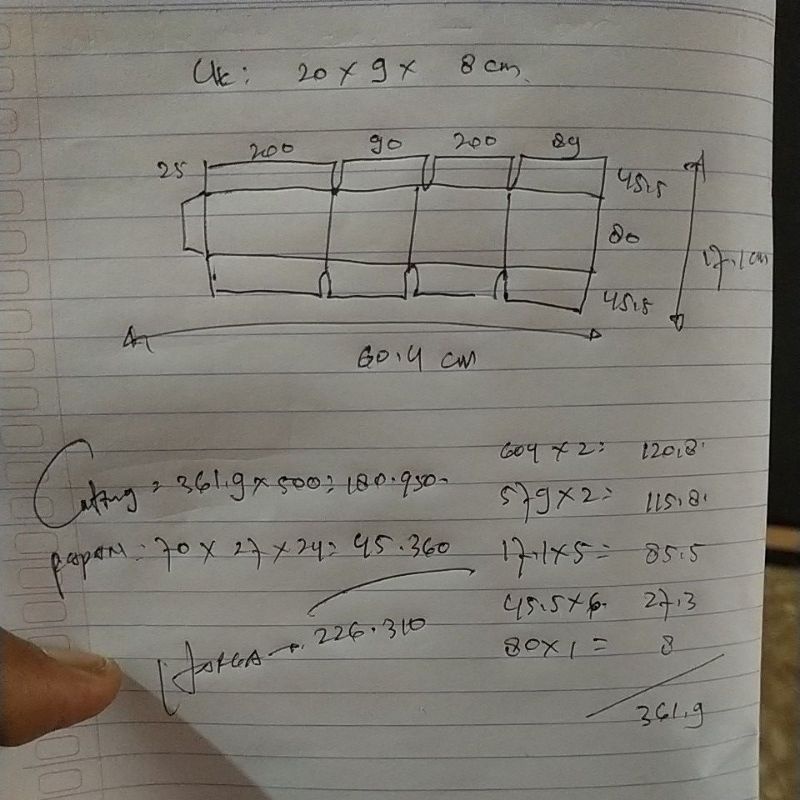 Uk: 20 x 9 x 8 cm.
25 200 90 200 89
45.5
80
17,1 cm
45.5
60.4 cm
604 x 2 = 120,8.
= 361.9 x 500 = 180.950-
579 x 2 = 115.8.
papan = 70 x 27 x 24 = 45.360
17,1 x 5 = 85.5
45.5 x 6. 27.3
HARGA → 226.310
80 x 1 = 8
361.9